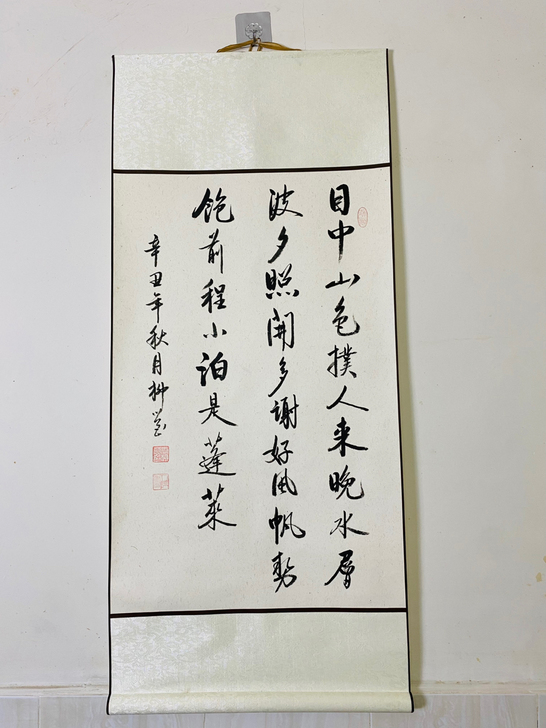 目中山色撲人来晚水層
波夕照開多謝好風帆勢
飽前程小泊是蓬萊
辛丑年秋月柳